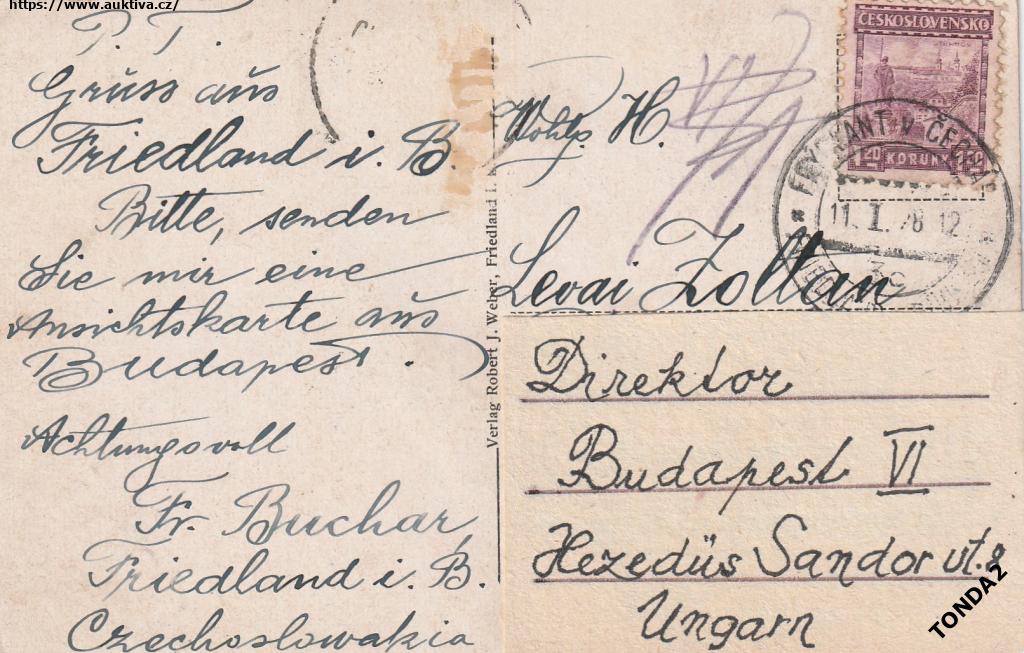 https://www.auktiva.cz/
P. T.
Gruss aus
Friedland i. B.
Bitte, senden
Sie mir eine
Ansichtskarte aus
Budapest.
Achtungsvoll
Fr. Buchar,
Friedland i. B.
Czechoslowakia
Verlag Robert J. Weber, Friedland i.
ČESKOSLOVENSKO
1 20 KORUN 1 20
FRÝDLANT V ČECH
11. I. 28 12
3c
H.
Levai Zoltan
Direktor
Budapest VI
Hezedüs Sandor ut. 9
Ungarn
TONDA2